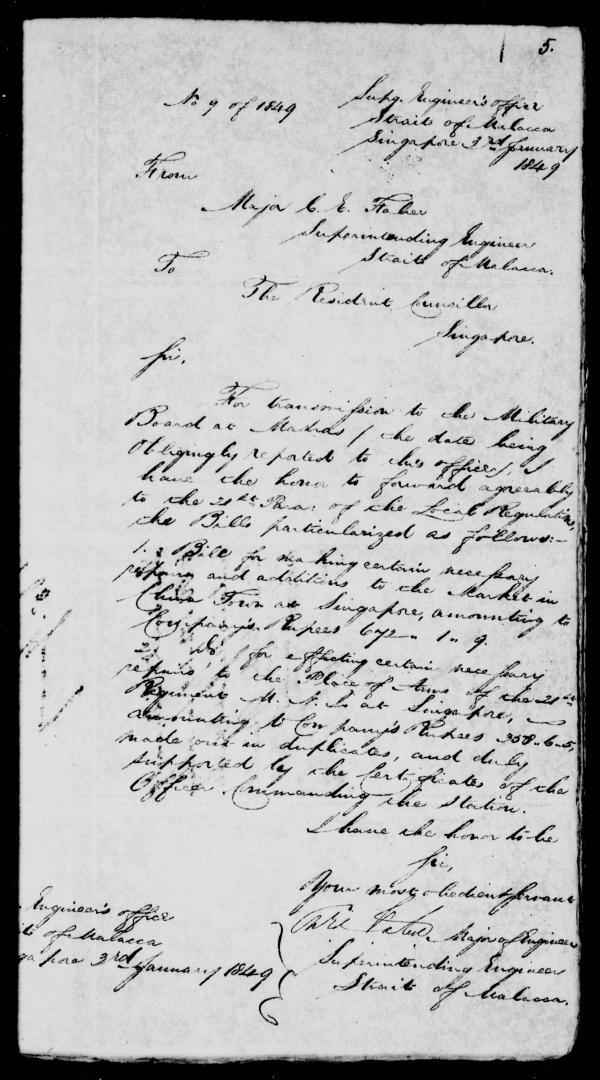 5.
No 9 of 1849
Supg. Engineer's office
Straits of Malacca
Singapore 3rd January
1849
From
Major C. E. Faber
Superintending Engineer
Straits of Malacca.
To
The Resident Councillor
Singapore.
Sir,
For transmission to the Military
Board at Madras / the date being
Obligingly reported to this office /, I
have the honor to forward agreeably
to the 21st Para: of the Local Regulations,
the Bills particularized as follows:-
1. Bill for making certain necessary
repairs and additions to the Market in
China Town at Singapore, amounting to
Company's Rupees 672 " 1 " 9.
2. do for effecting certain necessary
repairs to the Place of Arms of the 21st
Regiment M. N. I. at Singapore,
amounting to Company's Rupees 358 " 6 " 5,
made out in duplicates, and duly
supported by the Certificates of the
Officer Commanding the Station.
I have the honor to be
Sir,
Your most obedient Servant
Major of Engineers
Superintending Engineer
Straits of Malacca.
Engineer's office
ts of Malacca
gapore 3rd January 1849